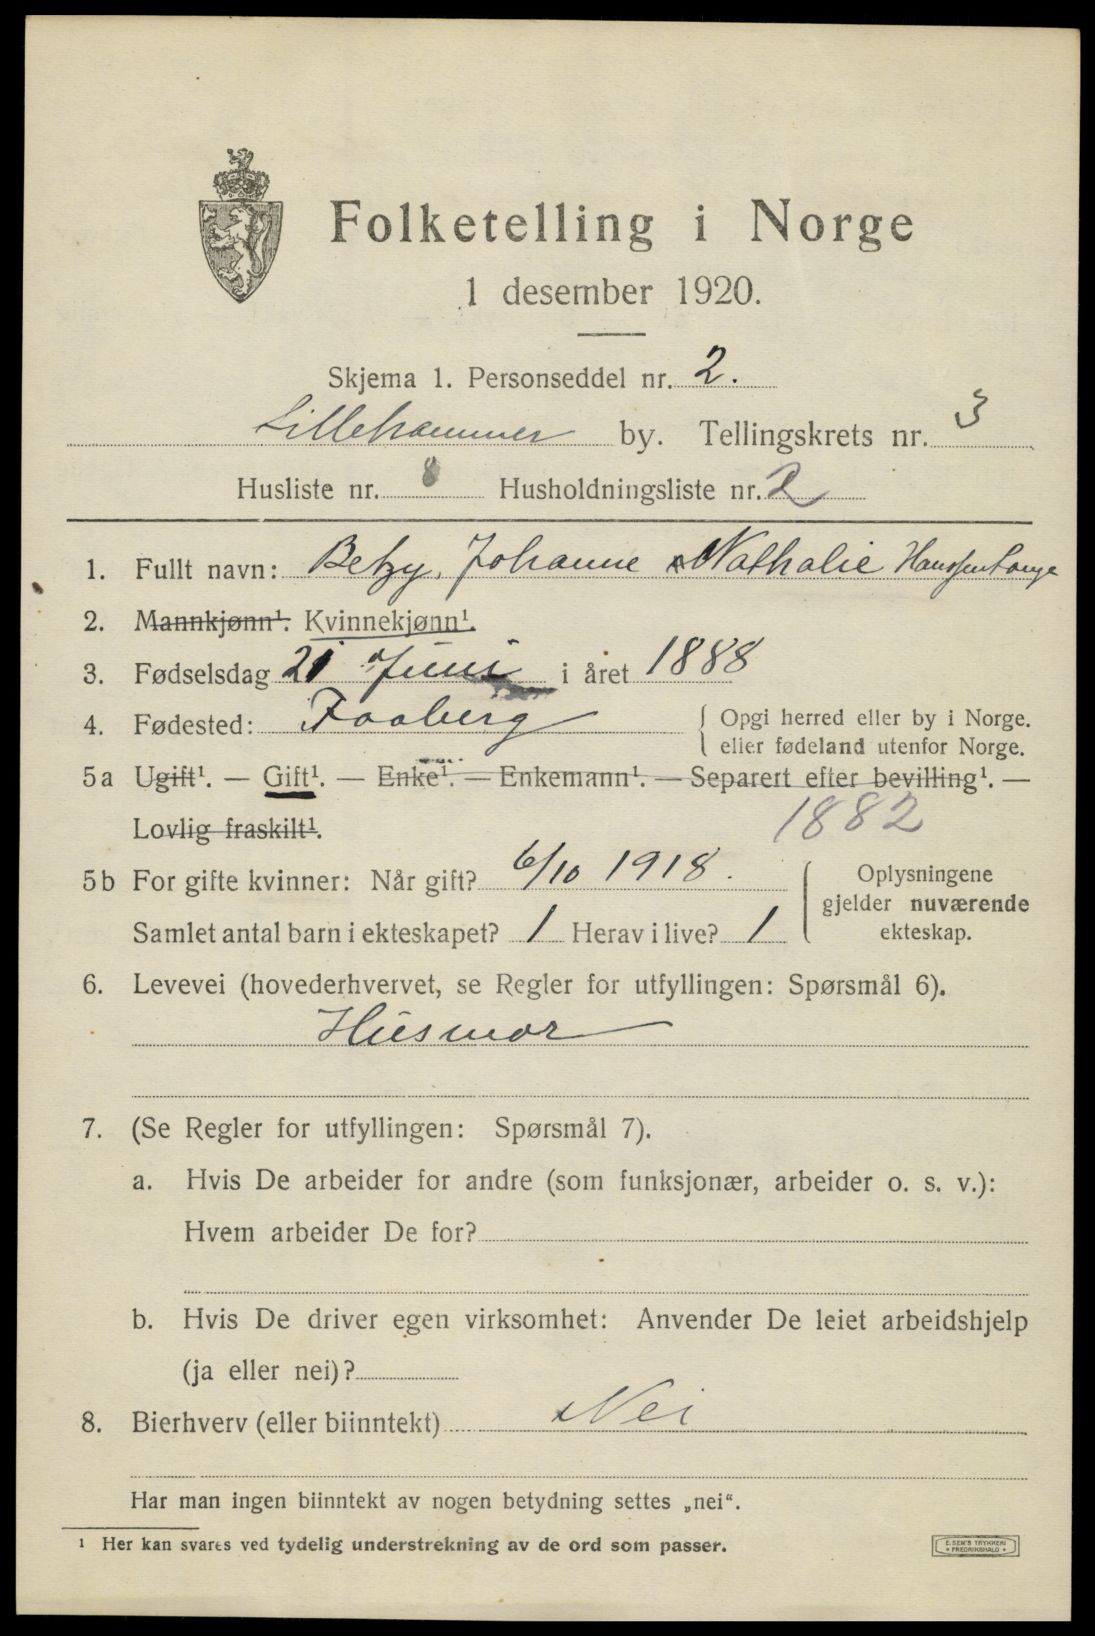 Folketelling i Norge
1 desember 1920.
Skjema 1. Personseddel nr. 2.
Lillehammer by. Tellingskrets nr. 3
Husliste nr. 8 Husholdningsliste nr. 2
1. Fullt navn: Betzy, Johanne Nathalie Hanssen Lange
2. Mannkjønn¹. Kvinnekjønn¹.
3. Fødselsdag 21 Juni i året 1888
4. Fødested: Faaberg { Opgi herred eller by i Norge.
eller fødeland utenfor Norge.
5a Ugift¹. — Gift¹. — Enke¹. — Enkemann¹. — Separert efter bevilling¹. —
Lovlig fraskilt¹. 1882
5b For gifte kvinner: Når gift? 6/10 1918. { Oplysningene
gjelder nuværende
Samlet antal barn i ekteskapet? 1 Herav i live? 1 ekteskap.
6. Levevei (hovederhvervet, se Regler for utfyllingen: Spørsmål 6).
Husmor
7. (Se Regler for utfyllingen: Spørsmål 7).
a. Hvis De arbeider for andre (som funksjonær, arbeider o. s. v.):
Hvem arbeider De for?
b. Hvis De driver egen virksomhet: Anvender De leiet arbeidshjelp
(ja eller nei)?
8. Bierhverv (eller biinntekt) Nei
Har man ingen biinntekt av nogen betydning settes „nei“.
¹ Her kan svares ved tydelig understrekning av de ord som passer.
E. SEM'S TRYKKERI
• FREDRIKSHALD •